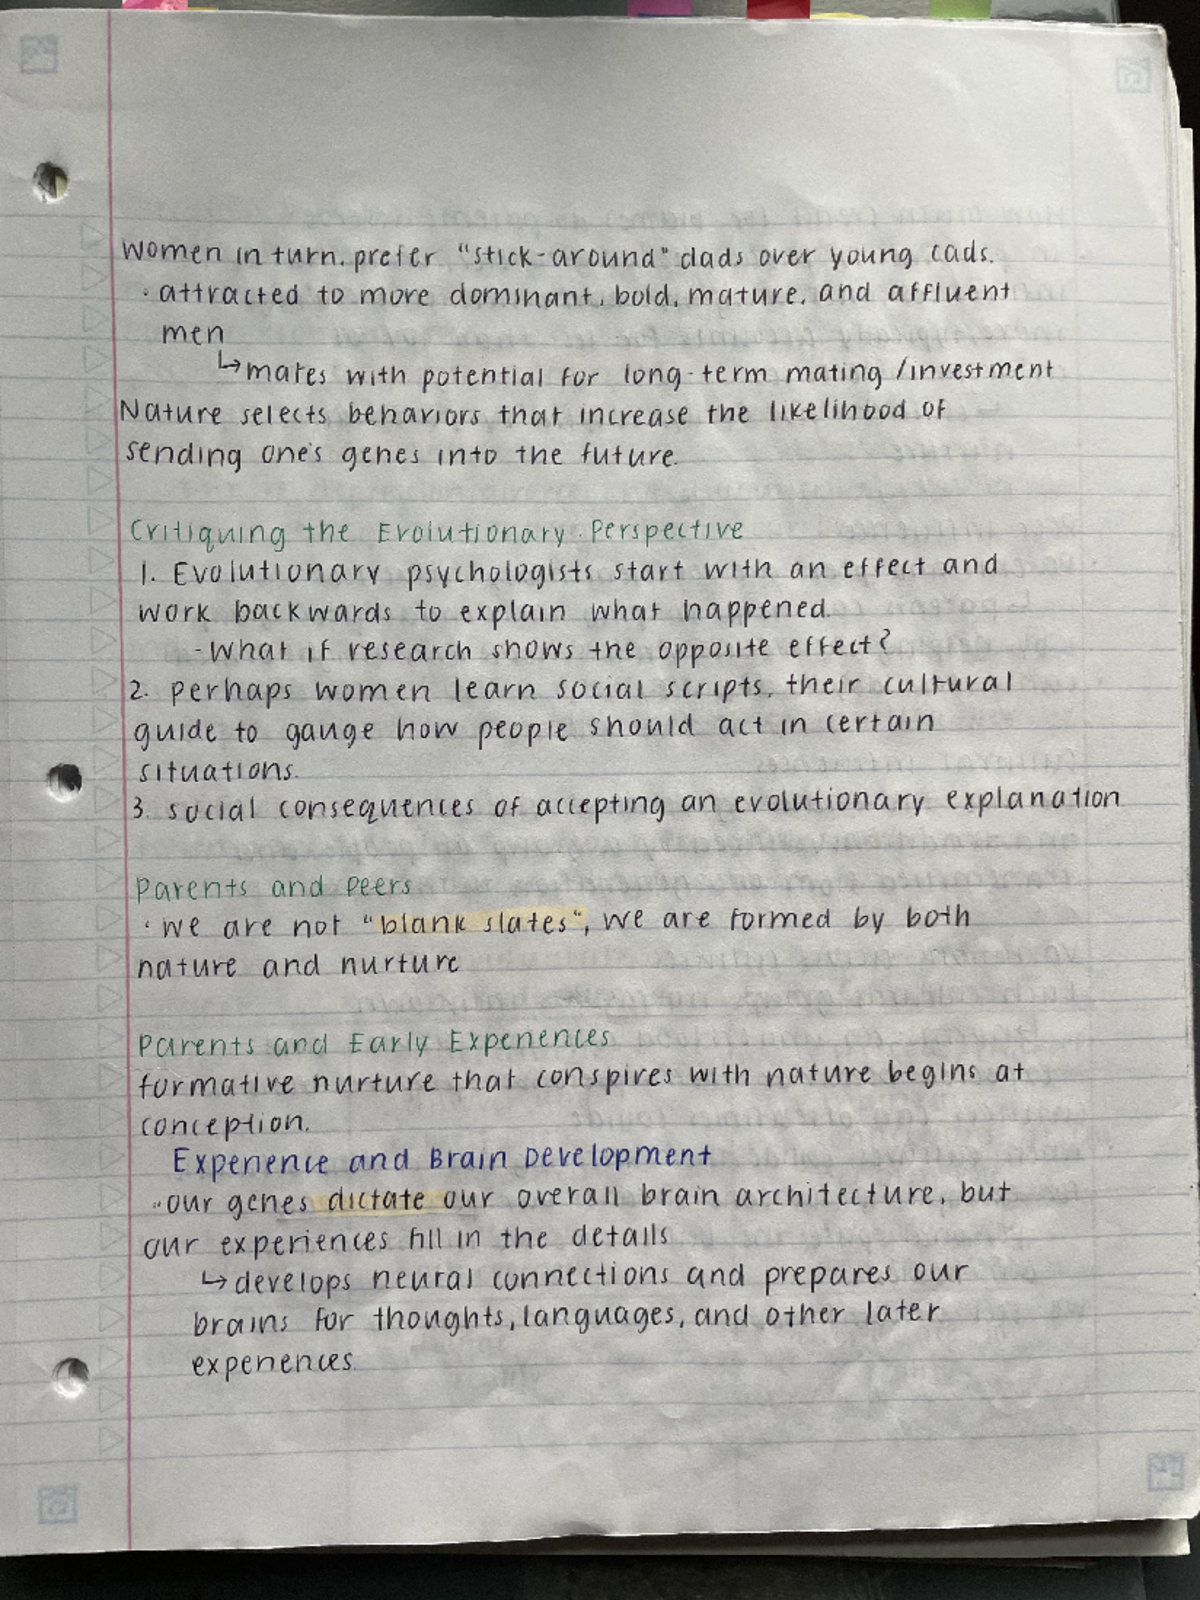 Women in turn, prefer "stick-around" dads over young cads.
· attracted to more dominant, bold, mature, and affluent
men
↳ mates with potential for long-term mating / investment
Nature selects behaviors that increase the likelihood of
sending one's genes into the future.
Critiquing the Evolutionary Perspective
1. Evolutionary psychologists start with an effect and
work backwards to explain what happened.
- What if research shows the opposite effect?
2. perhaps women learn social scripts, their cultural
guide to gauge how people should act in certain
situations.
3. social consequences of accepting an evolutionary explanation
Parents and Peers
· we are not "blank slates", we are formed by both
nature and nurture
Parents and Early Experiences
formative nurture that conspires with nature begins at
conception.
Experience and Brain Development
· our genes dictate our overall brain architecture, but
our experiences fill in the details
↳ develops neural connections and prepares our
brains for thoughts, languages, and other later
experiences.